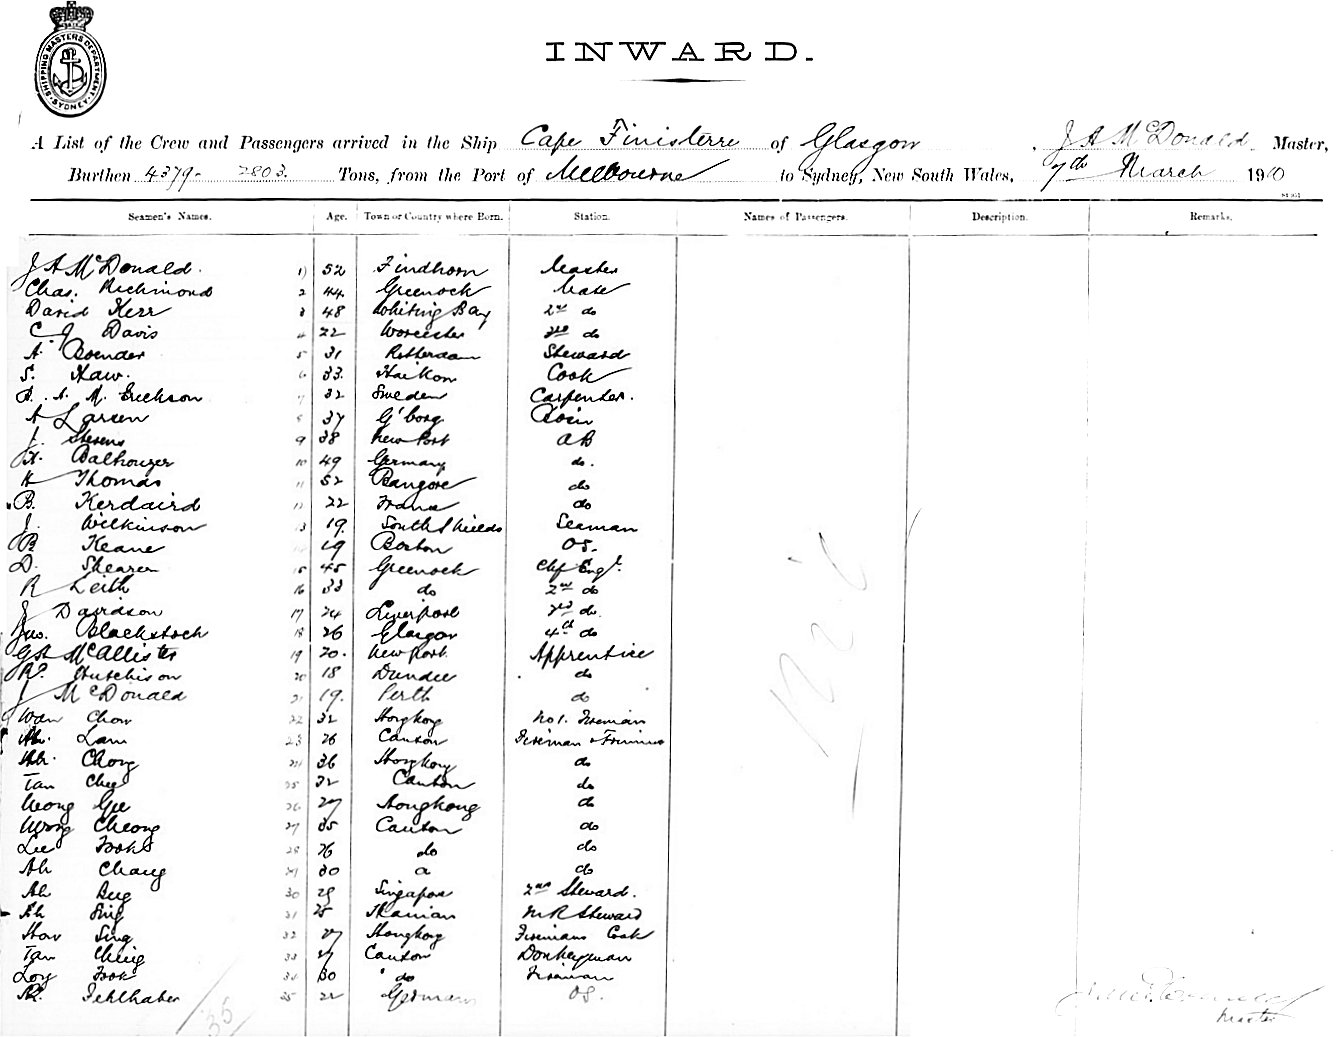 SHIPPING MASTERS DEPARTMENT SYDNEY
INWARD.
A List of the Crew and Passengers arrived in the Ship Cape Finisterre of Glasgow, J A McDonald Master,
Burthen 4379 - 2803. Tons, from the Port of Melbourne to Sydney, New South Wales, 7th March 1910
Seamen's Names. Age. Town or Country where Born. Station. Names of Passengers. Description. Remarks.
J A McDonald. 1) 52 Findhorn Master
Chas. Richmond 2 44 Greenock Mate
David Kerr 3 48 Whiting Bay 2nd do
C J Davis 4 22 Worcester 3rd do
A. Boender 5 31 Rotterdam Steward
S. Haw. 6 33. Cook
B. A. M. Erickson 7 32 Sweden Carpenter.
A Larsen 8 37 G'borg Bosin
J. Stevens 9 38 New Port AB
H. Balhouzer 10 49 Germany do.
H Thomas 11 52 Bangore do
B. Kerdaird 12 22 France do
J. Wilkinson 13 19. South Shields Seaman
B Keane 19 Boston OS.
D. Shearer 15 45 Greenock Chf Engr.
R Leith 16 33 do 2nd do
J Davidson 17 24 Liverpool 3rd do.
Jno. Blackstock 18 26 Glasgow 4th do
McAllister 19 20. New Port. Apprentice
R. Hutchison 20 18 Dundee do
J McDonald 21 19. Perth do
Wan Chow 22 32 Hongkong No 1. Fireman
Ah. Lam 23 26 Canton Fireman & Trimmer
Ah. Chong 24 36 Hongkong do
Tan Chee 25 32 Canton do
Weong Gee 26 27 Hongkong do
Wong Cheong 27 35 Canton do
Lee Fook 28 26 do do
Ah Chang 29 30 do
Ah Bug 30 29 Singapore 2nd Steward.
Ah Sing 31 25 Hanian M R Steward
How Sing 32 27 Hongkong Firemans Cook
Tan Ching 33 27 Canton Donkeyman
Loy Fook 34 30 do Fireman
R. Fehlhaber 35 22 Germany OS.
Nil
35
Master